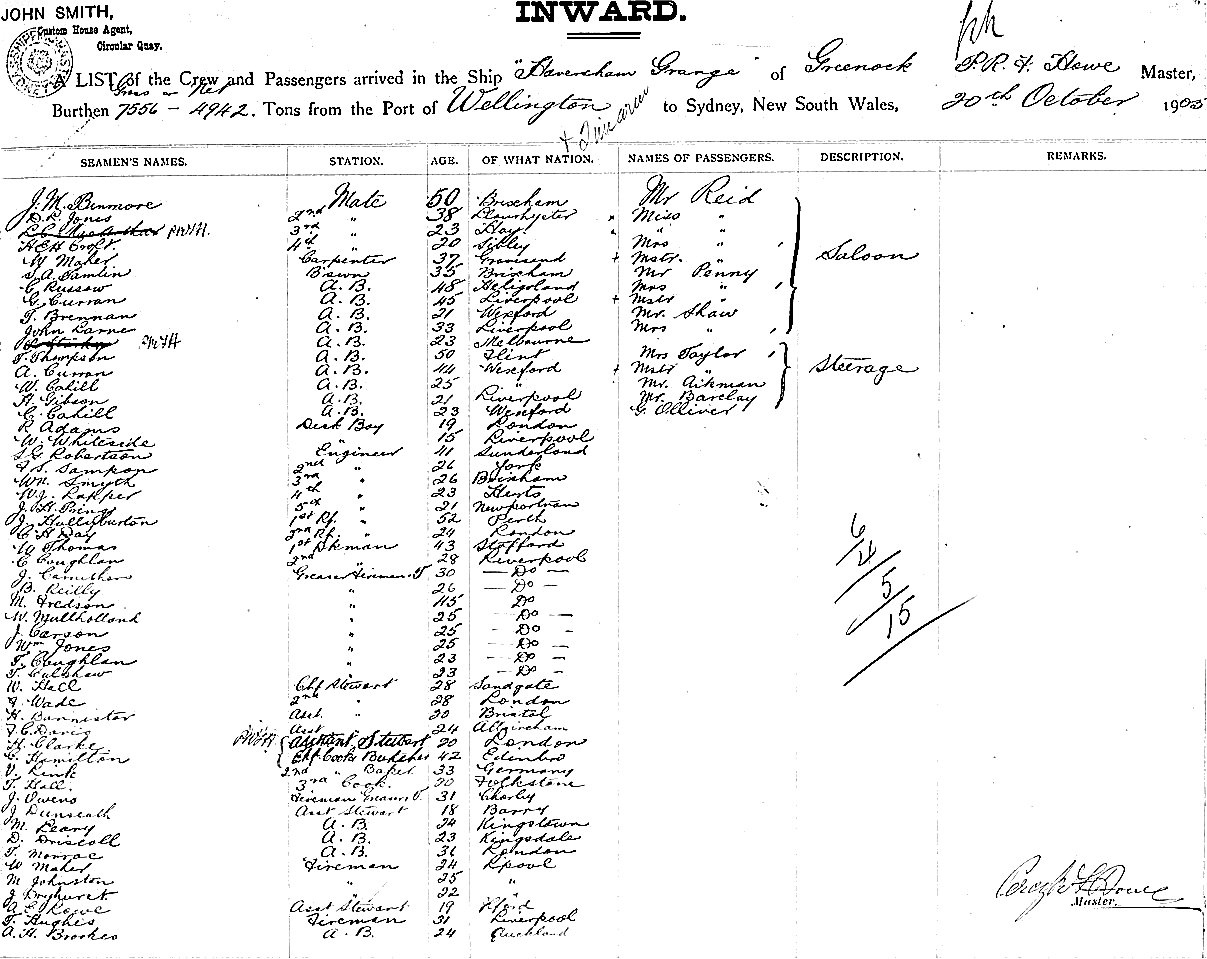 INWARD.
JOHN SMITH,
Custom House Agent,
Circular Quay.
A LIST of the Crew and Passengers arrived in the Ship "Haversham Grange" of Greenock P. R. F. Howe Master,
Gross or Net
Burthen 7556 - 4942. Tons from the Port of Wellington to Sydney, New South Wales, 20th October 1905
+ Timaru
SEAMEN'S NAMES. STATION. AGE. OF WHAT NATION. NAMES OF PASSENGERS. DESCRIPTION. REMARKS.
J. M. Binmore Mate 50 Brixham Mr Reid
D. R. Jones 2nd " 38 Miss "
3rd " 23 Hay "
H E H Croft. 4th " 20 Sibley Mrs "
W Maher Carpenter 37 Gravesend + Mstr. " Saloon
S. A. Tamlin B'swn 35 Brixham Mr Penny
C. Russow A. B. 48 Heligoland Mrs "
G. Curran A. B. 45 Liverpool + Mstr "
T. Brennan A. B. 21 Wexford Mr. Shaw
John Larne A. B. 33 Liverpool Mrs "
A. B. 23 Melbourne
T. Thompson A. B. 50 Flint Mrs Taylor
A. Curran A. B. 44 Wexford + Mstr " Steerage
W. Cahill A. B. 25 " Mr. Aikman
H. Gibson A. B. 21 Liverpool Mr. Barclay
C. Cahill A. B. 23 Wexford G. Olliver
R Adams Deck Boy 19 London
W. Whiteside " 15 Liverpool
S. G. Robertson Engineer 41 Sunderland
F. S. Sampson 2nd " 26 York
Wm. Smyth 3rd " 26 Brixham
W. J. Rapper 4th " 23 Herts
J. H. Prings 5th " 21
J. Hollyburton 1st Rf. " 52 Perth
C H Day 2nd Rf. " 24 London
W Thomas 1st 43 Stafford
C Coughlan 2nd " 28 Liverpool
J. Carruthers Greaser Fireman. T 30 — Do —
B. Reilly " 26 — Do —
M. Fredson " 45 Do
W. Mullholland " 25 — Do —
J. Carson " 25 — Do —
Wm Jones " 25 — Do —
T. Coughlan " 23 — Do —
T. Culshaw " 23 — Do —
W. Hall Chf Stewart 28 Sandgate
J. Wade 2nd " 28 London
H. Bannister Asst. " 20 Bristol
Asst 24 Altrincham
H. Clarke Assistant Stewart 20 London
C. Hamilton Chf Cook & Butcher 42 Edenbro
V. Link 2nd " Baker 33 Germany
T. Hall. 3rd Cook. 20 Folkstone
J. Owens 31 Chorley
J Dunseath Asst Stewart 18 Barry
M. Leary A. B. 24 Kingstown
D. Driscoll A. B. 23 Kingsdale
T. Monroe A. B. 31 London
W Maher Fireman 24 Lpool
M Johnston " 25 "
J Dryhurst " 22 "
A. E. Rowe Asst Stewart 19 Ilford
T. Hughes Fireman 31 Liverpool
A. H. Brookes A. B. 24 Auckland
6
4
5
15
Master.